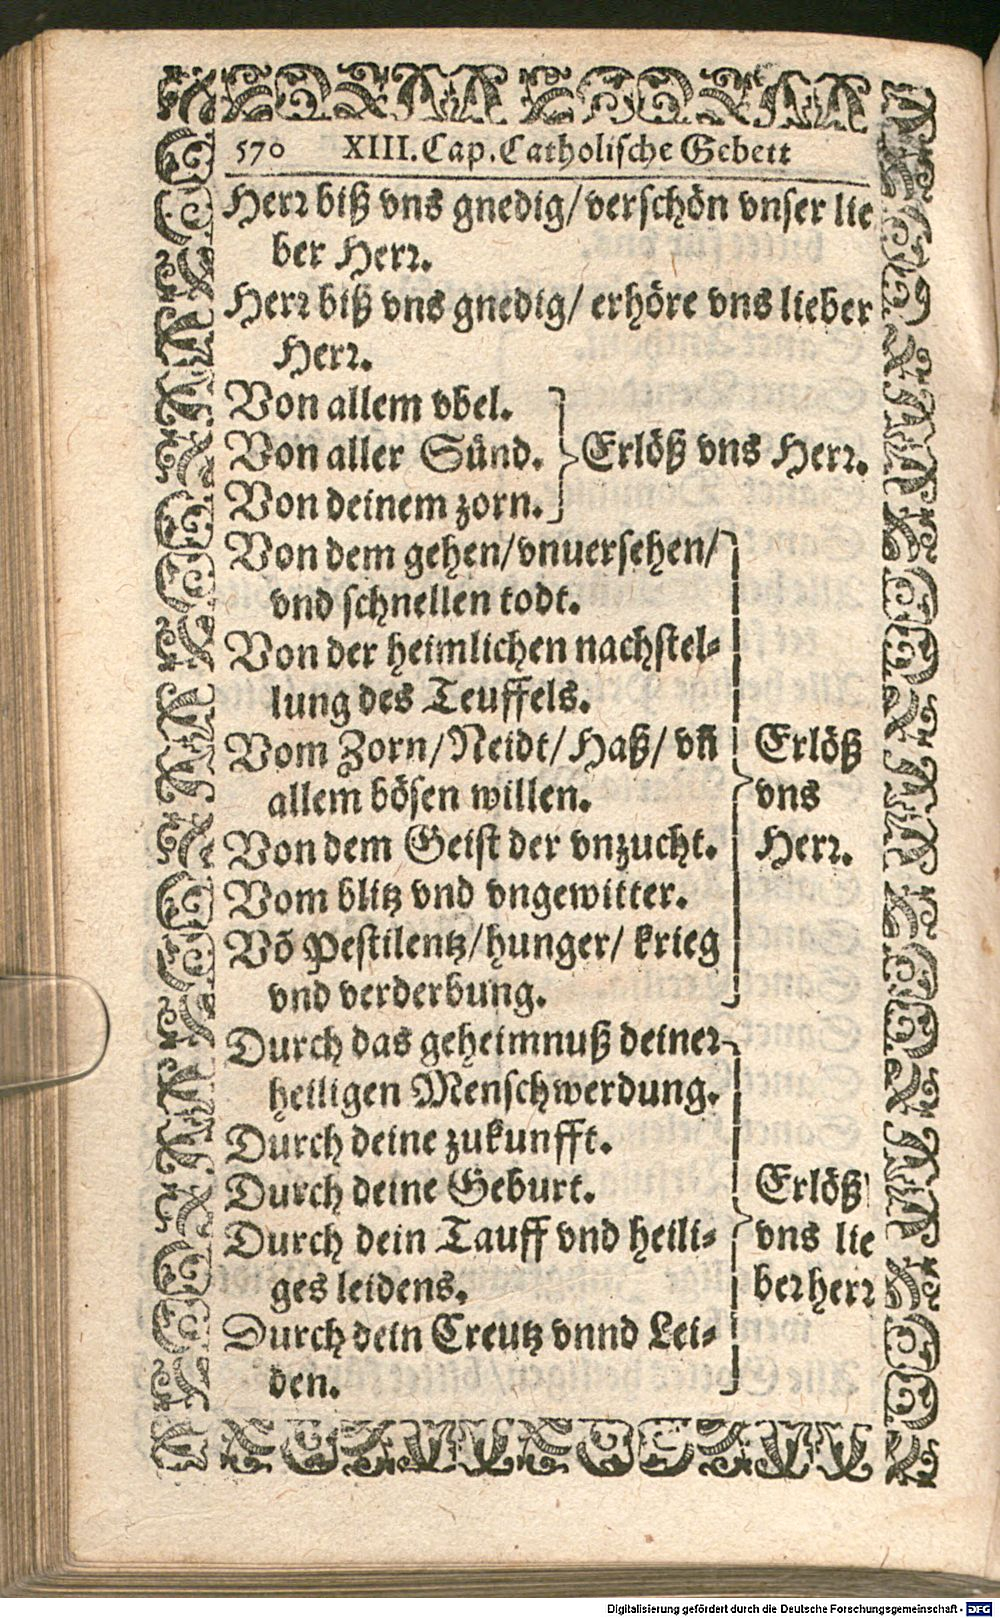 570 XIII.Cap.Catholische Gebett
Herꝛ biß vns gnedig/verschön vnser lie
ber Herꝛ.
Herꝛ biß vns gnedig/ erhöre vns lieber
Herꝛ.
Von allem vbel.
Von aller Sünd. Erlöß vns Herꝛ.
Von deinem zorn.
Von dem gehen/vnuersehen/
vnd schnellen todt.
Von der heimlichen nachstel-
lung des Teuffels.
Vom Zorn/Neidt/Haß/ vñ Erlöß
allem bösen willen. vns
Von dem Geist der vnzucht. Herꝛ.
Vom blitz vnd vngewitter.
Võ Pestilentz/hunger/ krieg
vnd verderbung.
Durch das geheimnuß deineꝛ
heiligen Menschwerdung.
Durch deine zukunfft.
Durch deine Geburt. Erlöß
Durch dein Tauff vnd heili- vns lie
ges leidens. beꝛ herꝛ
Durch dein Creutz vnnd Lei-
den.
Digitalisierung gefördert durch die Deutsche Forschungsgemeinschaft - DFG